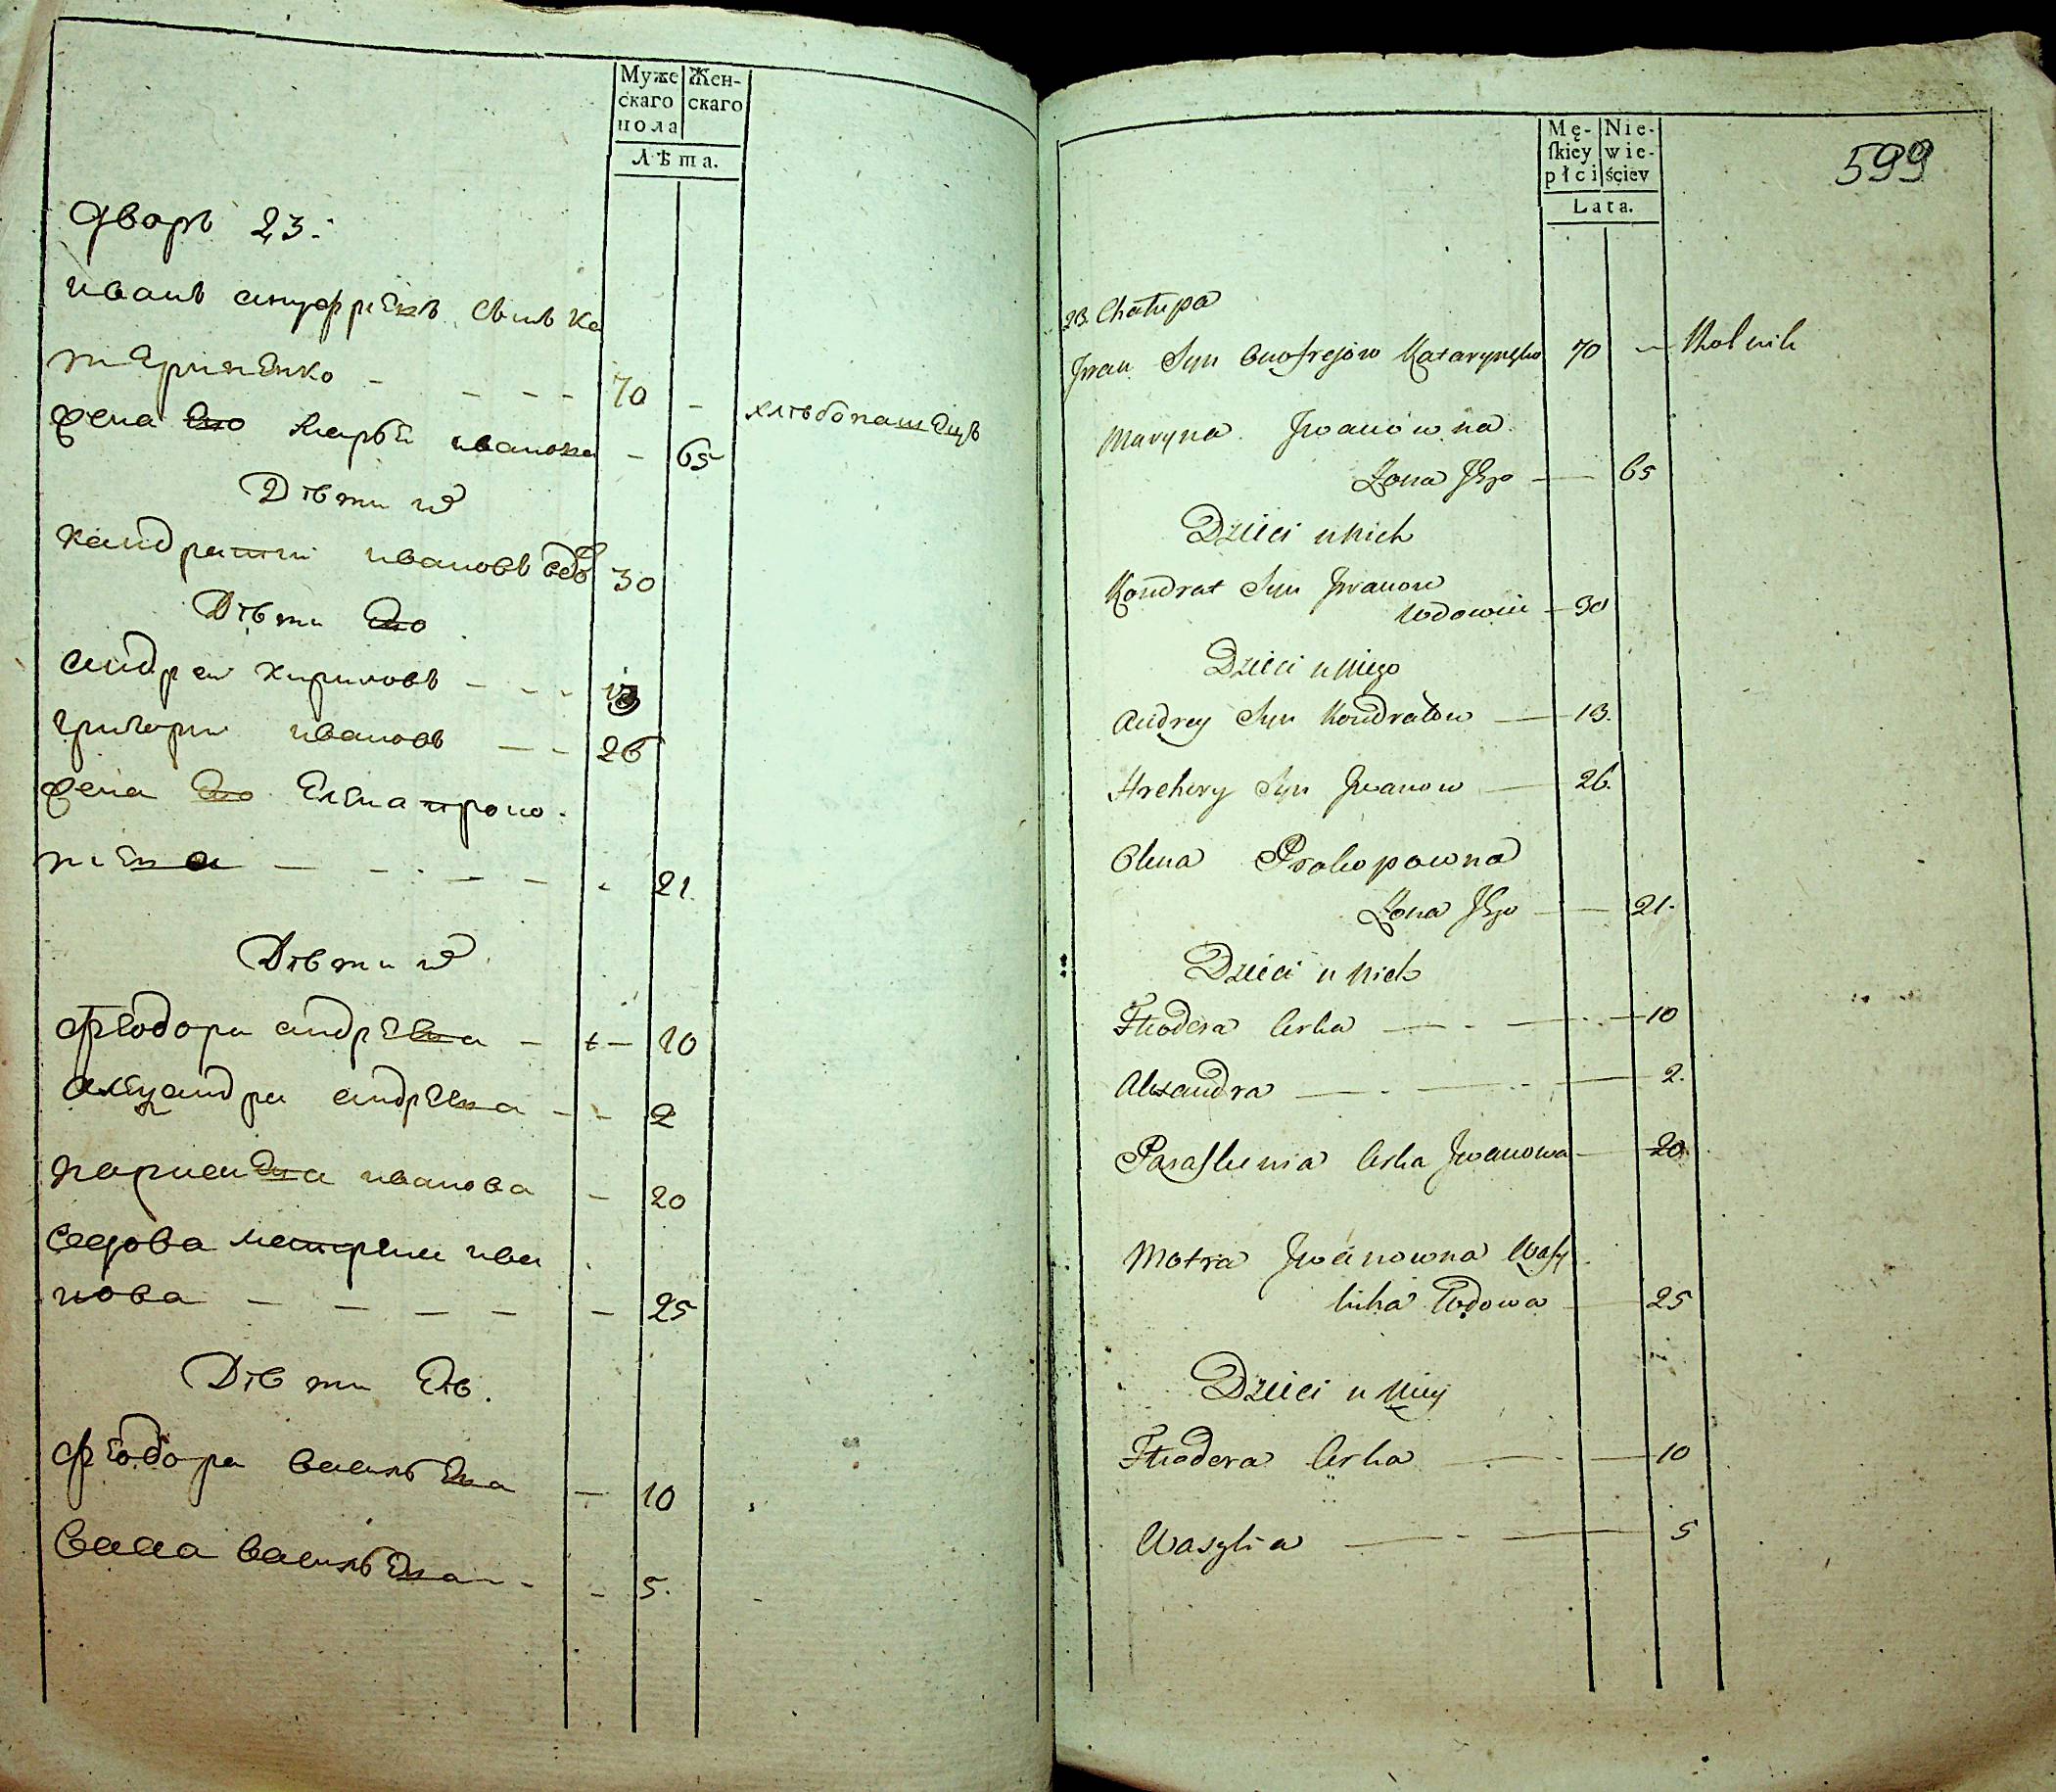 Муже Жен-
скаго скаго
пола
Лѣта.
дворъ 23.
иванъ ануфріевъ сынъ ка
териненко - - - - 70 -
хлѣбопашецъ
жена его марья иванова - 65
Дѣти их
кандратий ивановъ вдов 30
Дѣти его
андрей кириловъ - - - 13
григори ивановъ - - 26
жена его Елена проко-
пиева - - - - - 21.
Дѣти их
феодора андреева - - 10
александра андреева - - 2
парасевиа иванова - 20
вдова матрена ива
нова - - - - - 25
Дѣти ея.
феодора васильева - 10
васса васильева - - - 5.
599
Mę- Nie-
ſkiey wie-
płci ściey
Lata.
23. Chałupa
Jwan Syn Onofrejow Katarynęko 70 - Rolnik
Maryna Jwanówna
Żona Jego - 65
Dzieci u nich
Kondrat Syn Jwanow
Wdowiec - 30
Dzieci u niego
Andrey Syn Kondratow - 13.
Hrehory Syn Jwanow - 26.
Olena Prokopowna
Żona Jego - 21.
Dzieci u nich
Fteodora Corka - 10
Alexandra - 2.
Paraskewia Corka Jwanowa - 20
Motra Jwanowna Wasy
licha Wdowa - 25
Dzieci u niey
Fteodora Corka - 10
Wasylia - 5